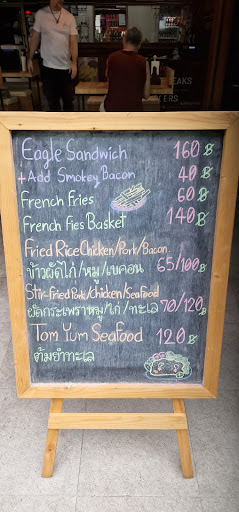 Eagle Sandwich 160฿
+Add Smokey Bacon 40฿
French Fries 60฿
French Fies Basket 140฿
Fried Rice Chicken/Pork/Bacon
ข้าวผัดไก่/หมู/เบคอน 65/100฿
Stir-fried Pork/Chicken/Seafood
ผัดกระเพราหมู/ไก่/ทะเล 70/120฿
Tom Yum Seafood 120฿
ต้มยำทะเล